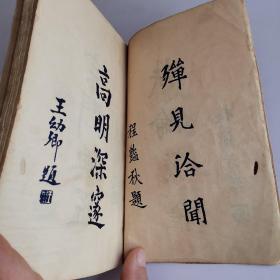 殫見洽聞
程豔秋題
高明深邃
王幼卿題